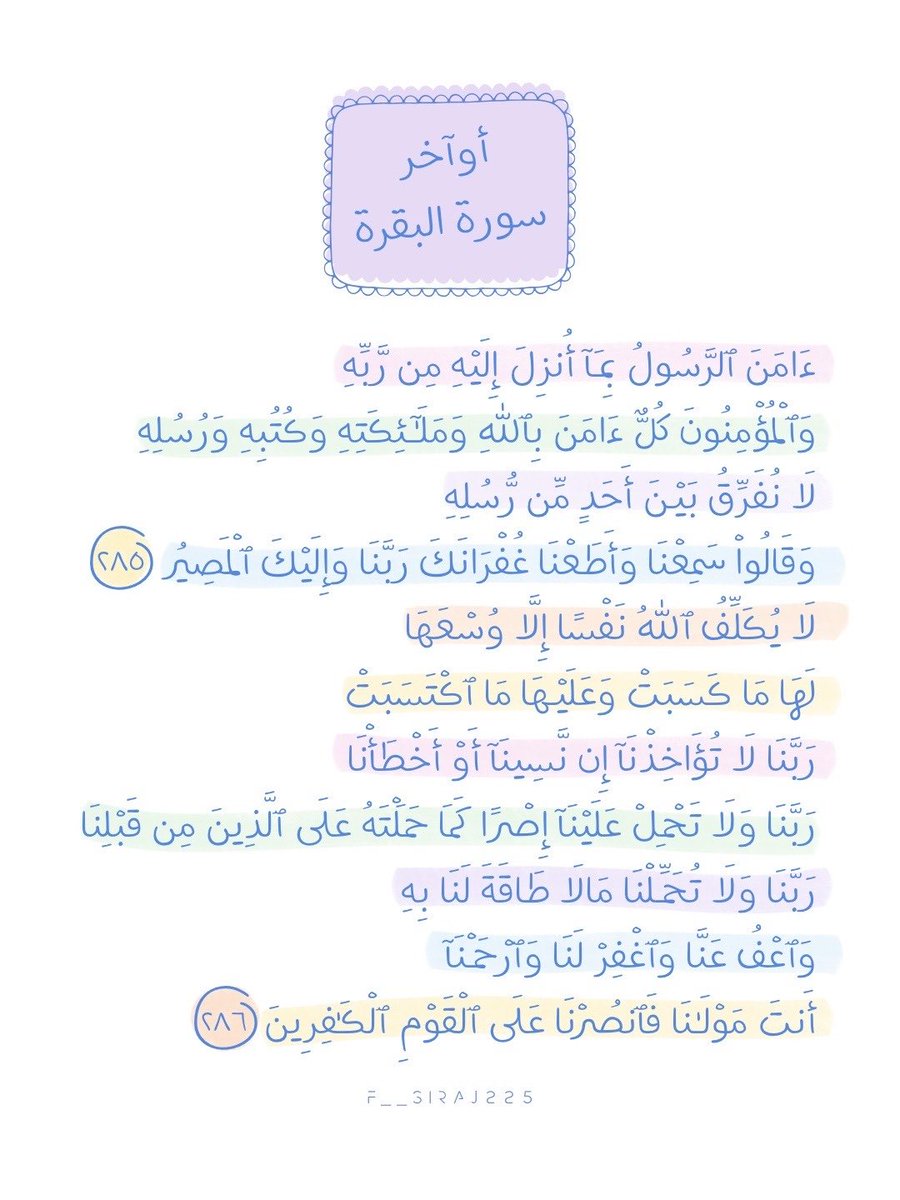 أوآخر
سورة البقرة
ءَامَنَ ٱلرَّسُولُ بِمَآ أُنزِلَ إِلَيْهِ مِن رَّبِّهِ
وَٱلْمُؤْمِنُونَ كُلٌّ ءَامَنَ بِٱللَّهِ وَمَلَـٰٓئِكَتِهِ وَكُتُبِهِ وَرُسُلِهِ
لَا نُفَرِّقُ بَيْنَ أَحَدٍ مِّن رُّسُلِهِ
وَقَالُوا۟ سَمِعْنَا وَأَطَعْنَا غُفْرَانَكَ رَبَّنَا وَإِلَيْكَ ٱلْمَصِيرُ ٢٨٥
لَا يُكَلِّفُ ٱللَّهُ نَفْسًا إِلَّا وُسْعَهَا
لَهَا مَا كَسَبَتْ وَعَلَيْهَا مَا ٱكْتَسَبَتْ
رَبَّنَا لَا تُؤَاخِذْنَآ إِن نَّسِينَآ أَوْ أَخْطَأْنَا
رَبَّنَا وَلَا تَحْمِلْ عَلَيْنَآ إِصْرًا كَمَا حَمَلْتَهُ عَلَى ٱلَّذِينَ مِن قَبْلِنَا
رَبَّنَا وَلَا تُحَمِّلْنَا مَالَا طَاقَةَ لَنَا بِهِ
وَٱعْفُ عَنَّا وَٱغْفِرْ لَنَا وَٱرْحَمْنَآ
أَنتَ مَوْلَىٰنَا فَٱنصُرْنَا عَلَى ٱلْقَوْمِ ٱلْكَـٰفِرِينَ ٢٨٦
F__SIRAJ225